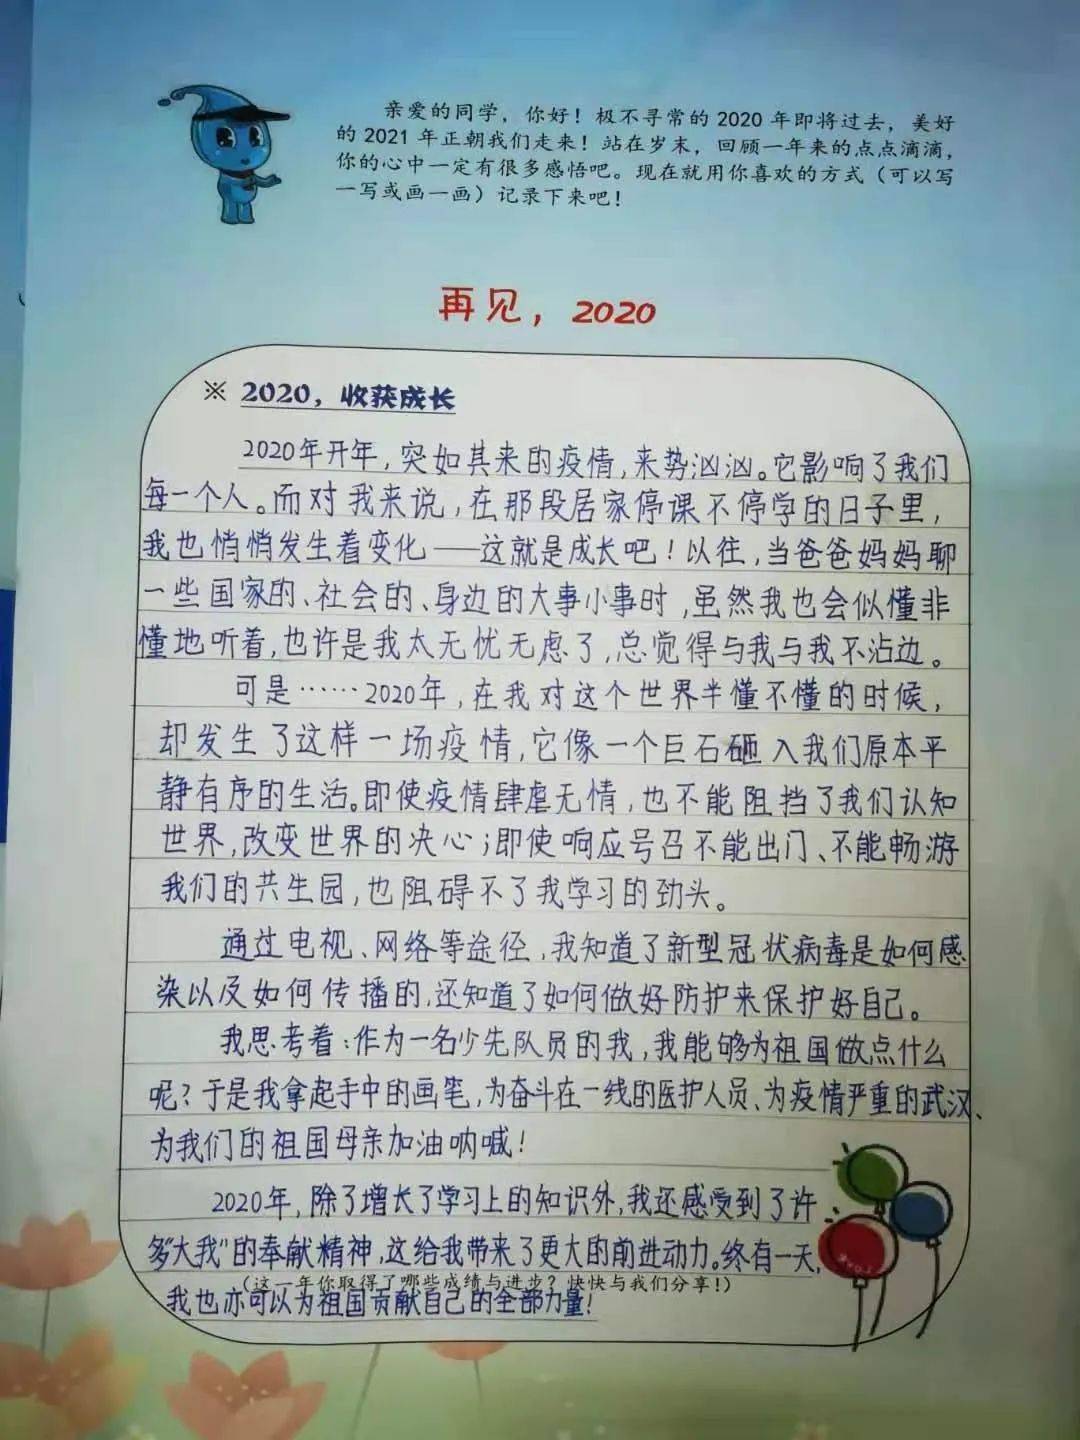 亲爱的同学，你好！极不寻常的 2020 年即将过去，美好
的 2021 年正朝我们走来！站在岁末，回顾一年来的点点滴滴，
你的心中一定有很多感悟吧。现在就用你喜欢的方式（可以写
一写或画一画）记录下来吧！
再见，2020
※ 2020，收获成长
2020年开年，突如其来的疫情，来势汹汹。它影响了我们
每一个人。而对我来说，在那段居家停课不停学的日子里，
我也悄悄发生着变化——这就是成长吧！以往，当爸爸妈妈聊
一些国家的、社会的、身边的大事小事时，虽然我也会似懂非
懂地听着，也许是我太无忧无虑了，总觉得与我与我不沾边。
可是……2020年，在我对这个世界半懂不懂的时候，
却发生了这样一场疫情，它像一个巨石砸入我们原本平
静有序的生活。即使疫情肆虐无情，也不能阻挡了我们认知
世界，改变世界的决心；即使响应号召不能出门、不能畅游
我们的共生园，也阻碍不了我学习的劲头。
通过电视、网络等途径，我知道了新型冠状病毒是如何感
染以及如何传播的，还知道了如何做好防护来保护好自己。
我思考着：作为一名少先队员的我，我能够为祖国做点什么
呢？于是我拿起手中的画笔，为奋斗在一线的医护人员、为疫情严重的武汉、
为我们的祖国母亲加油呐喊！
2020年，除了增长了学习上的知识外，我还感受到了许
多“大我”的奉献精神，这给我带来了更大的前进动力。终有一天，
（这一年你取得了哪些成绩与进步？快快与我们分享！）
我也亦可以为祖国贡献自己的全部力量！